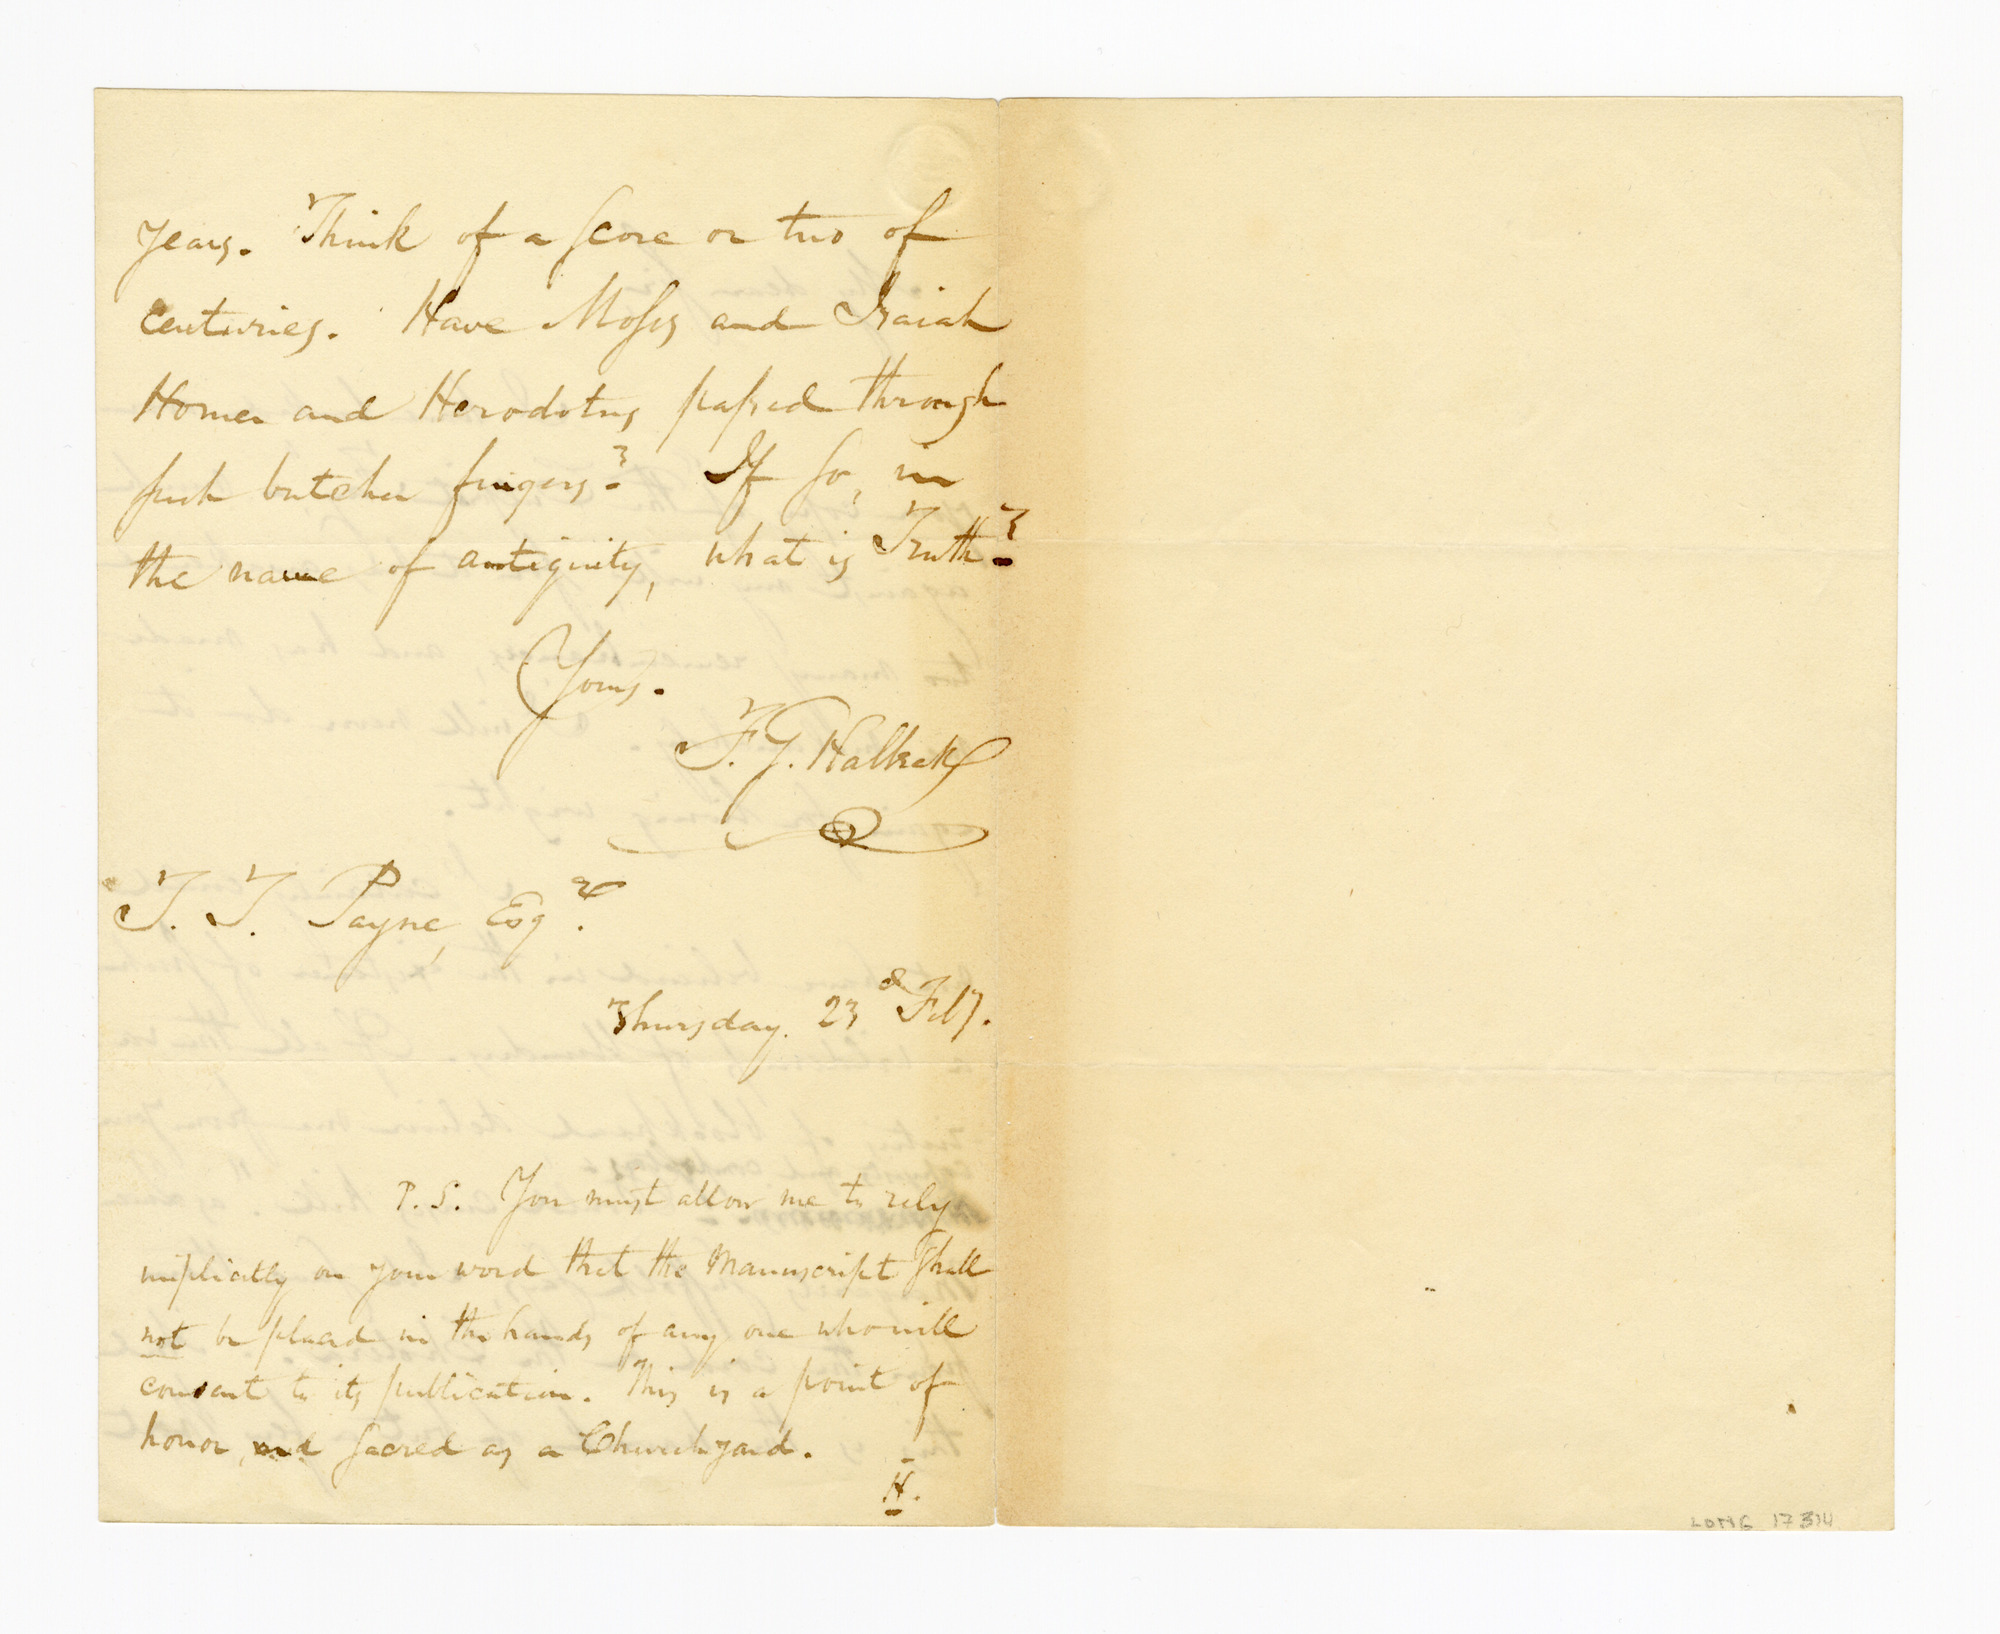 years. Think of a score or two of
centuries. Have Moses and Isaiah
Homer and Herodotus passed through
such butcher fingers? If so, in
the name of antiquity, what is Truth?
Yours.
F. G. Halleck
T. T. Payne, Esqr.
Thursday. 23d Feby.
P.S. You must allow me to rely
implicitly on your word that the Manuscript shall
not be placed in the hands of any one who will
consent to its publication. This is a point of
honor, and sacred as a Churchyard.
H.
LONG 17314